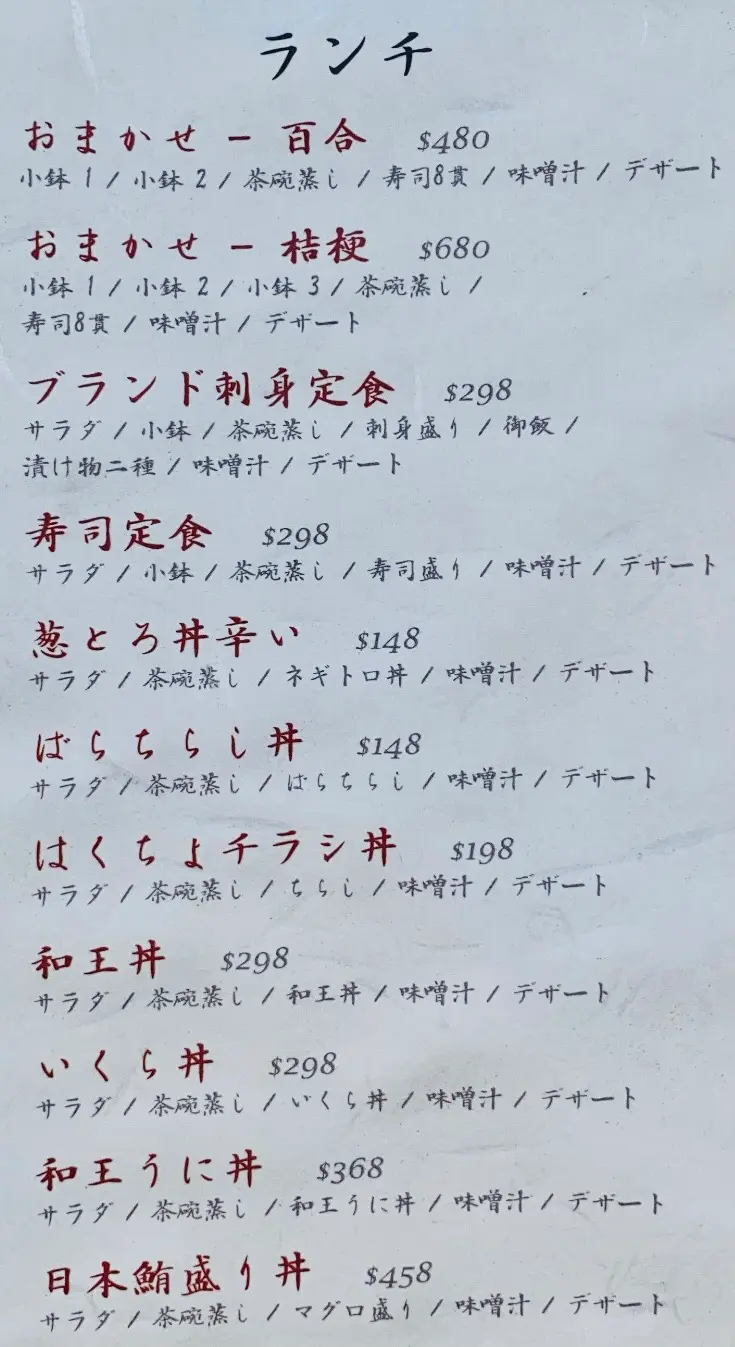 ランチ
おまかせ - 百合 $480
小鉢 1 / 小鉢 2 / 茶碗蒸し / 寿司8貫 / 味噌汁 / デザート
おまかせ - 桔梗 $680
小鉢 1 / 小鉢 2 / 小鉢 3 / 茶碗蒸し /
寿司8貫 / 味噌汁 / デザート
ブランド刺身定食 $298
サラダ / 小鉢 / 茶碗蒸し / 刺身盛り / 御飯 /
漬け物二種 / 味噌汁 / デザート
寿司定食 $298
サラダ / 小鉢 / 茶碗蒸し / 寿司盛り / 味噌汁 / デザート
葱とろ丼辛い $148
サラダ / 茶碗蒸し / ネギトロ丼 / 味噌汁 / デザート
ばらちらし丼 $148
サラダ / 茶碗蒸し / ばらちらし / 味噌汁 / デザート
はくちょチラシ丼 $198
サラダ / 茶碗蒸し / ちらし / 味噌汁 / デザート
和王丼 $298
サラダ / 茶碗蒸し / 和王丼 / 味噌汁 / デザート
いくら丼 $298
サラダ / 茶碗蒸し / いくら丼 / 味噌汁 / デザート
和王うに丼 $368
サラダ / 茶碗蒸し / 和王うに丼 / 味噌汁 / デザート
日本鮪盛り丼 $458
サラダ / 茶碗蒸し / マグロ盛り / 味噌汁 / デザート